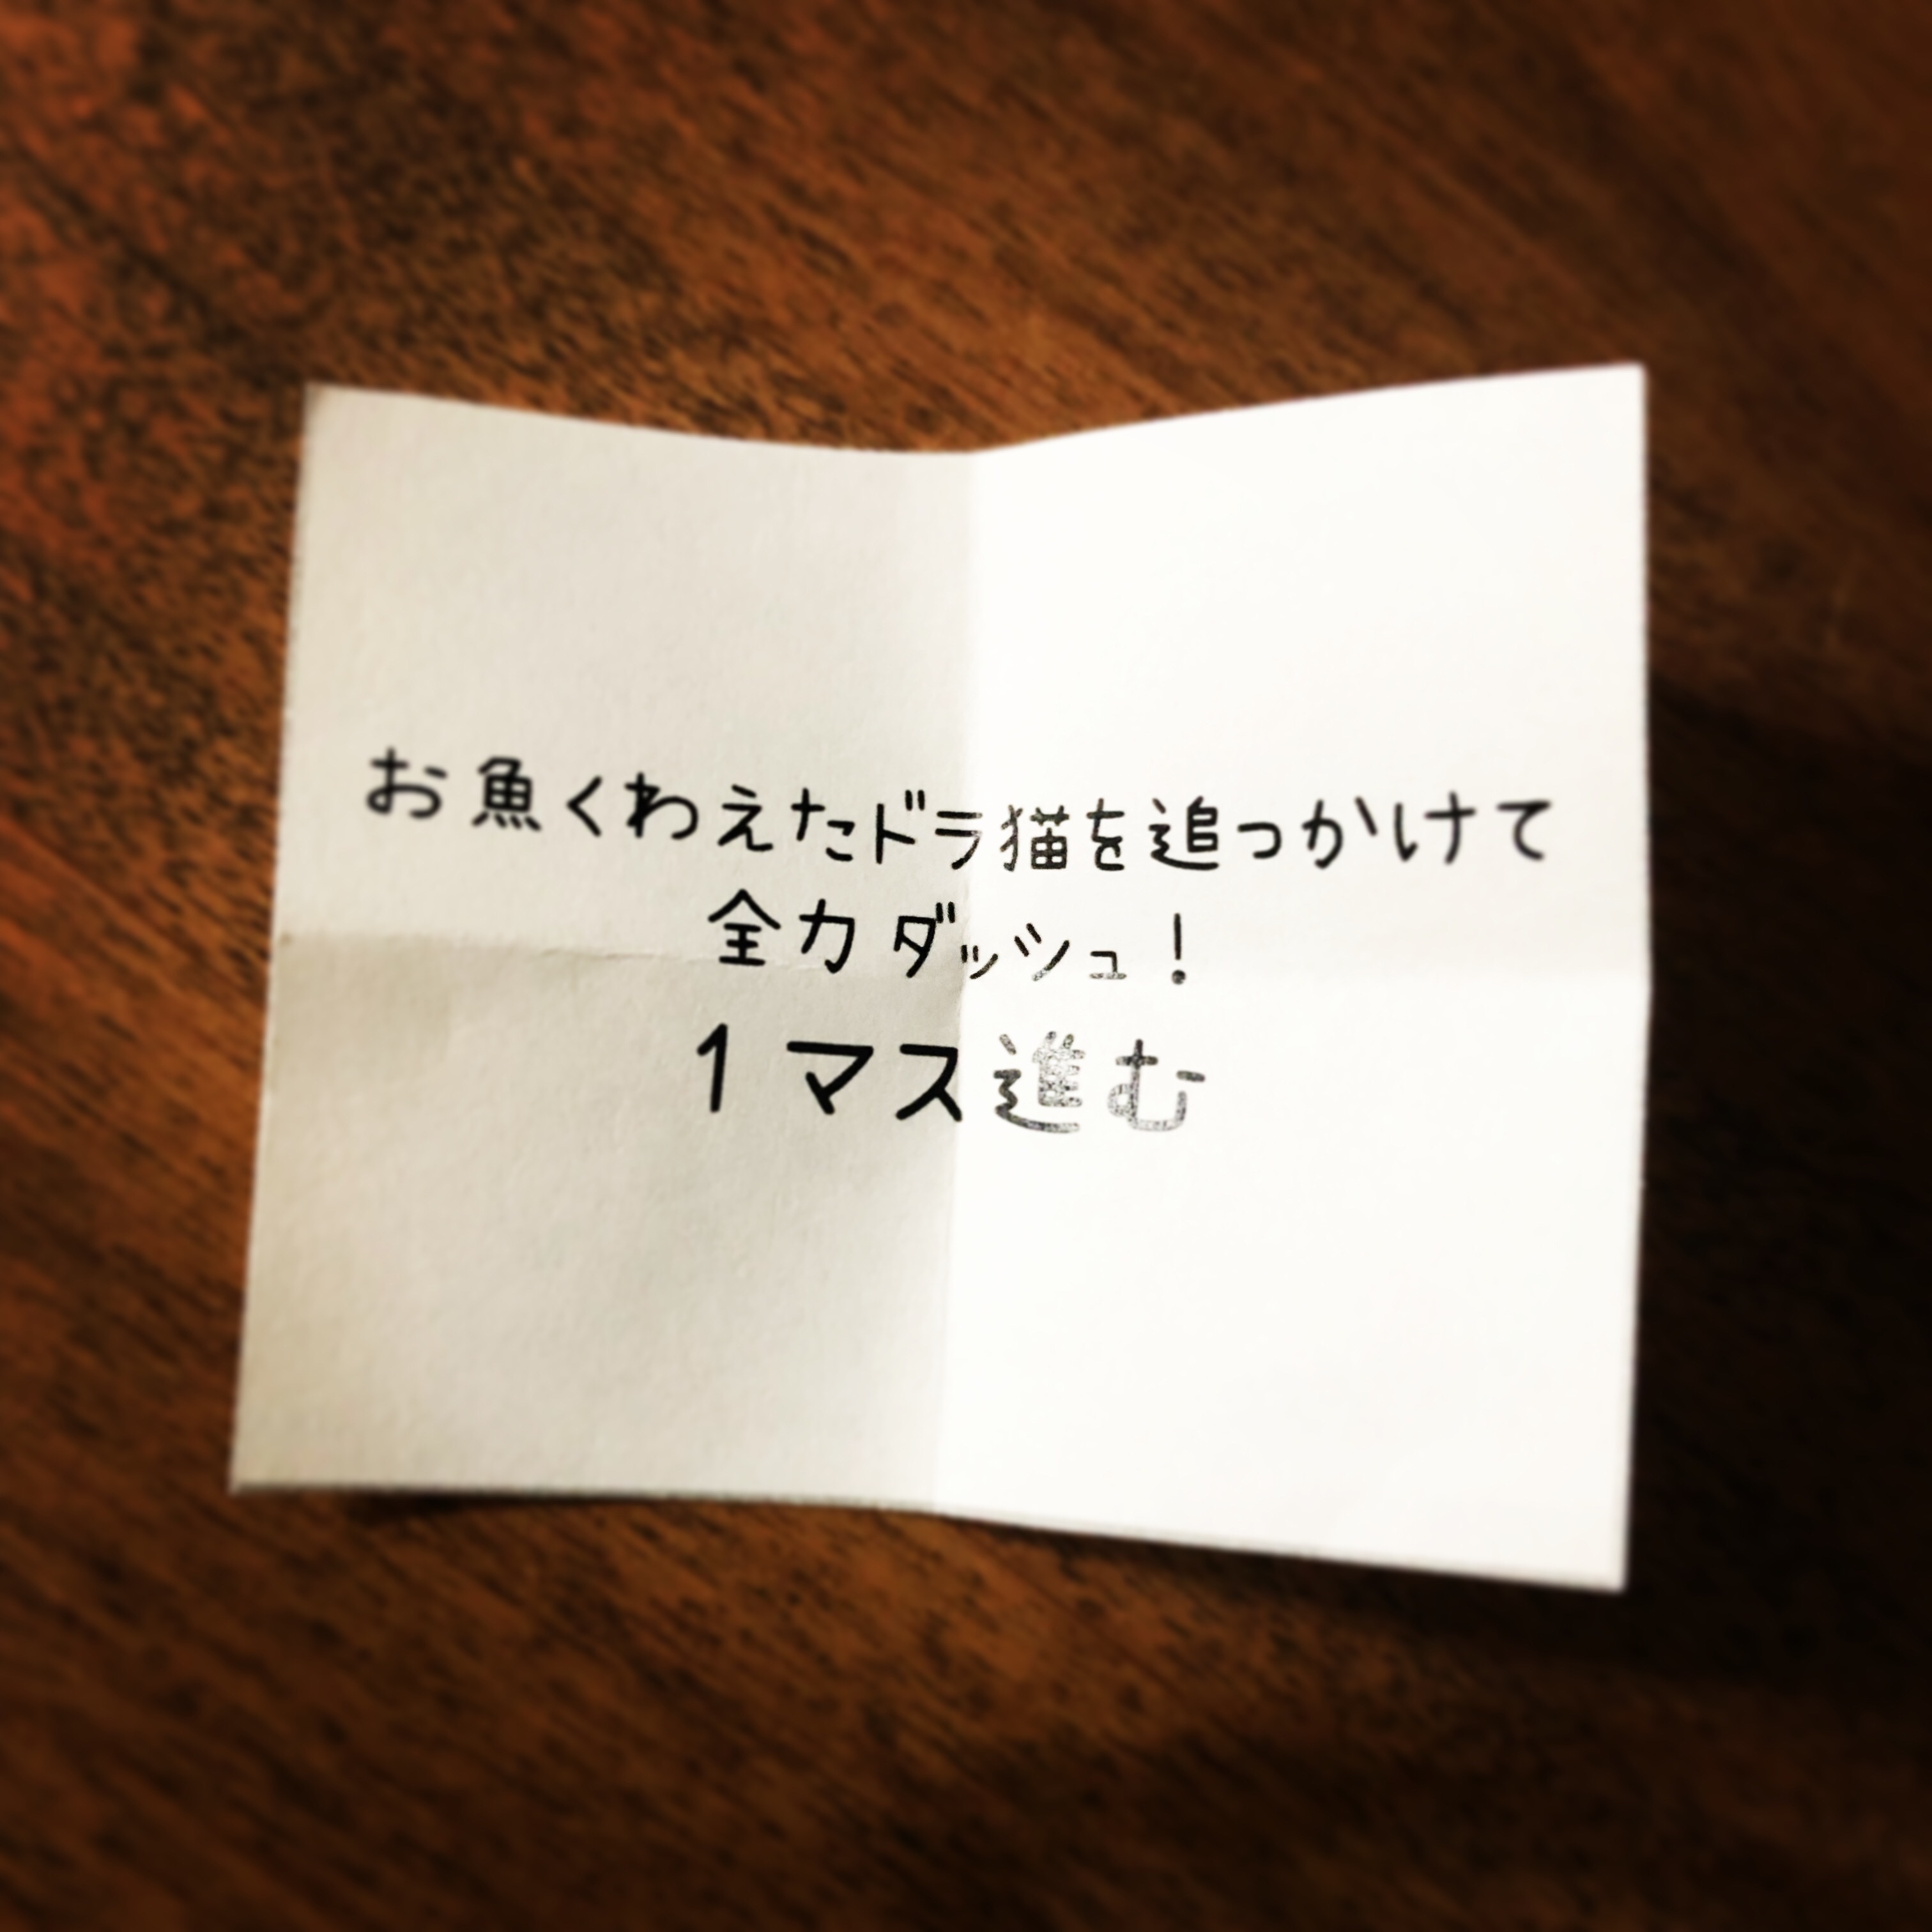 お魚くわえたドラ猫を追っかけて
全力ダッシュ！
1マス進む